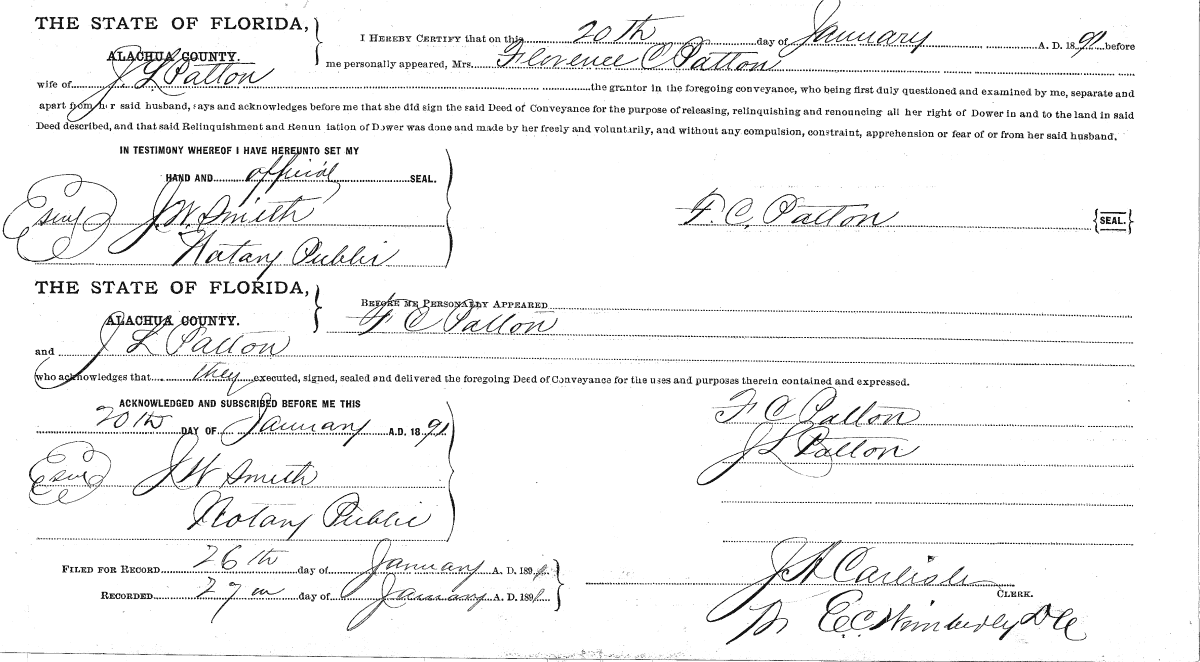 THE STATE OF FLORIDA,
ALACHUA COUNTY.
I HEREBY CERTIFY that on this 20th day of January A. D. 1891 before
me personally appeared, Mrs. Florence C Patton
wife of J L Patton the grantor in the foregoing conveyance, who being first duly questioned and examined by me, separate and
apart from her said husband, says and acknowledges before me that she did sign the said Deed of Conveyance for the purpose of releasing, relinquishing and renouncing all her right of Dower in and to the land in said
Deed described, and that said Relinquishment and Renun iation of Dower was done and made by her freely and voluntarily, and without any compulsion, constraint, apprehension or fear of or from her said husband.
IN TESTIMONY WHEREOF I HAVE HEREUNTO SET MY
HAND AND official SEAL.
J. W. Smith
Notary Public
F. C. Patton {SEAL.}
THE STATE OF FLORIDA,
ALACHUA COUNTY.
BEFORE ME PERSONALLY APPEARED
F C Patton
and J L Patton
who acknowledges that they executed, signed, sealed and delivered the foregoing Deed of Conveyance for the uses and purposes therein contained and expressed.
ACKNOWLEDGED AND SUBSCRIBED BEFORE ME THIS
20th DAY OF January A.D. 1891
J W Smith
Notary Public
F C Patton
J L Patton
FILED FOR RECORD 26th day of January A. D. 1891
RECORDED 27 day of January A. D. 1891
J A Carlisle
CLERK.
E. C. Wimberly D C